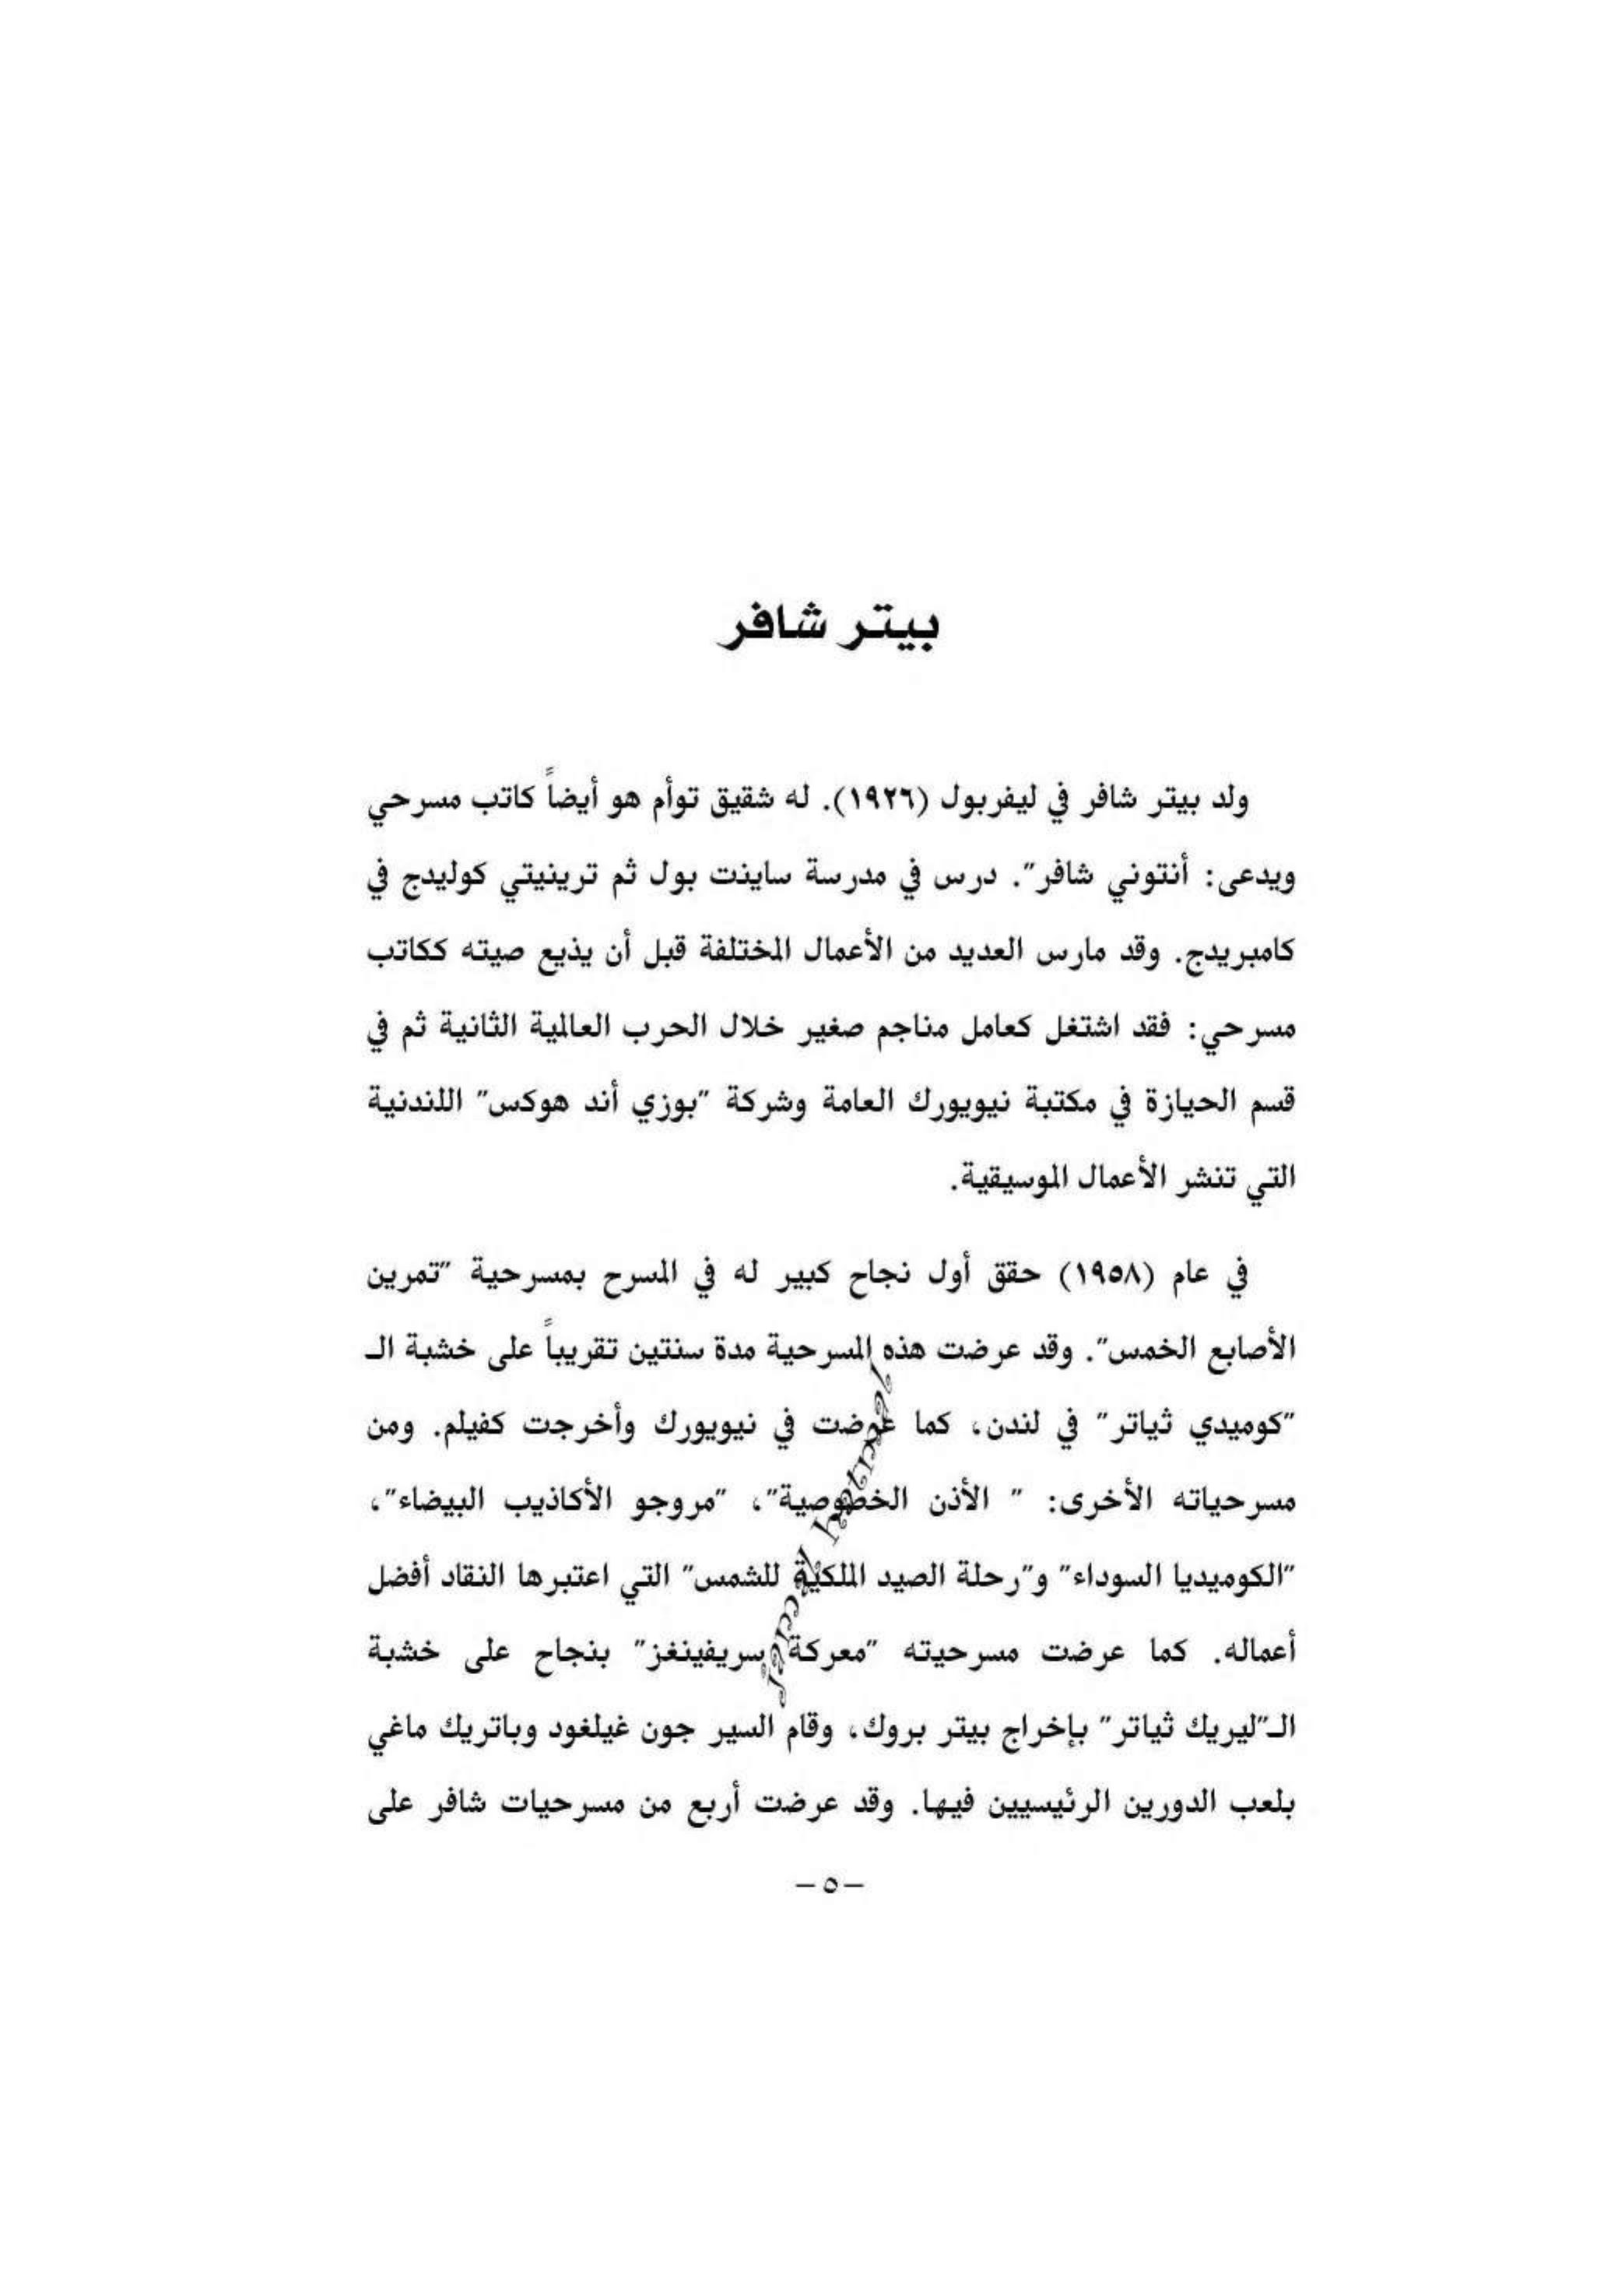 بيتر شافر
ولد بيتر شافر في ليفربول (١٩٢٦). له شقيق توأم هو أيضاً كاتب مسرحي
ويدعى: أنتوني شافر”. درس في مدرسة ساينت بول ثم ترينيتي كوليدج في
كامبريدج. وقد مارس العديد من الأعمال المختلفة قبل أن يذيع صيته ككاتب
مسرحي: فقد اشتغل كعامل مناجم صغير خلال الحرب العالمية الثانية ثم في
قسم الحيازة في مكتبة نيويورك العامة وشركة ”بوزي أند هوكس” اللندنية
التي تنشر الأعمال الموسيقية.
في عام (١٩٥٨) حقق أول نجاح كبير له في المسرح بمسرحية ”تمرين
الأصابع الخمس”. وقد عرضت هذه المسرحية مدة سنتين تقريباً على خشبة الـ
”كوميدي ثياتر” في لندن، كما عرضت في نيويورك وأخرجت كفيلم. ومن
مسرحياته الأخرى: ” الأذن الخصوصية”، ”مروجو الأكاذيب البيضاء”،
”الكوميديا السوداء” و”رحلة الصيد الملكية للشمس” التي اعتبرها النقاد أفضل
أعماله. كما عرضت مسرحيته ”معركة سريفينغز” بنجاح على خشبة
الـ”ليريك ثياتر” بإخراج بيتر بروك، وقام السير جون غيلغود وباتريك ماغي
بلعب الدورين الرئيسيين فيها. وقد عرضت أربع من مسرحيات شافر على
–٥–